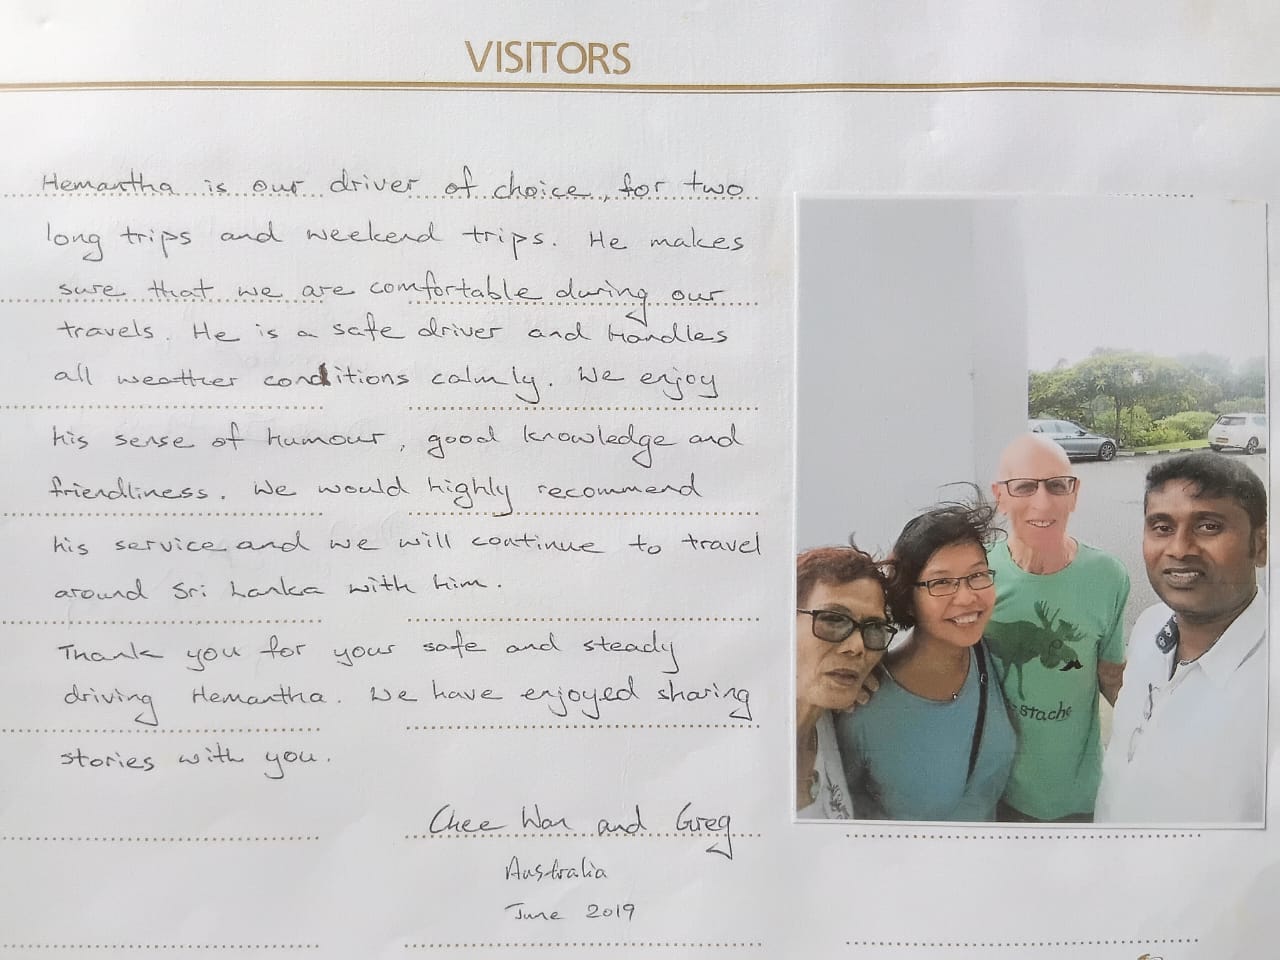 VISITORS
Hemantha is our driver of choice, for two
long trips and weekend trips. He makes
sure that we are comfortable during our
travels. He is a safe driver and handles
all weather conditions calmly. We enjoy
his sense of humour, good knowledge and
friendliness. We would highly recommend
his service and we will continue to travel
around Sri Lanka with him.
Thank you for your safe and steady
driving Hemantha. We have enjoyed sharing
stories with you.
Chee Wan and Greg
Australia
June 2019